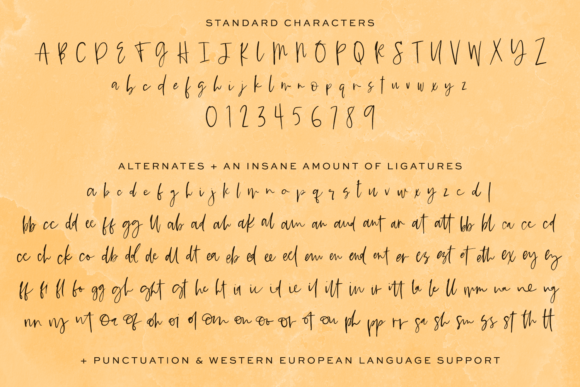 STANDARD CHARACTERS
A B C D E F G H I J K L M N O P Q R S T U V W X Y Z
a b c d e f g h i j k l m n o p q r s t u v w x y z
0 1 2 3 4 5 6 7 8 9
ALTERNATES + AN INSANE AMOUNT OF LIGATURES
a b c d e f g h i j k l m n o p q r s t u v w x y z c d l
bb cc dd ee ff gg ll ab ad ah ak al am an and ant ar at att bb bl ca cc cd
cc ch ck co db dd de dl dt ea eb ed ee eel em en end ent er es est et eth ex ey ey
ff fi fl fo gg gh ght gt he ht ia ic id ie il ill im in ir itt la le ll mm na ne ng
nn ny nt oa of oh oi ol om on oo or ot ou ph pp rr sa sh sm ss st th tt
+ PUNCTUATION & WESTERN EUROPEAN LANGUAGE SUPPORT